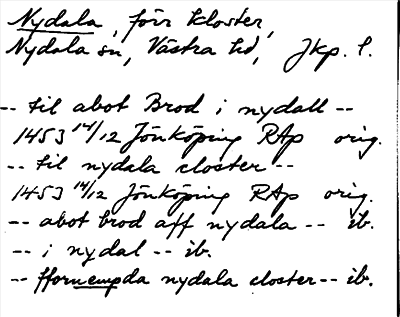 Nydala, förr kloster,
Nydala sn, Västra hd, Jkp. l.
-- til abot Brod i nydall --
1453 14/12 Jönköping RAp orig.
-- til nydala closter --
1453 14/12 Jönköping RAp orig.
-- abot brod aff nydala -- ib.
-- i nydal -- ib.
-- ffornempda nydala closter -- ib.